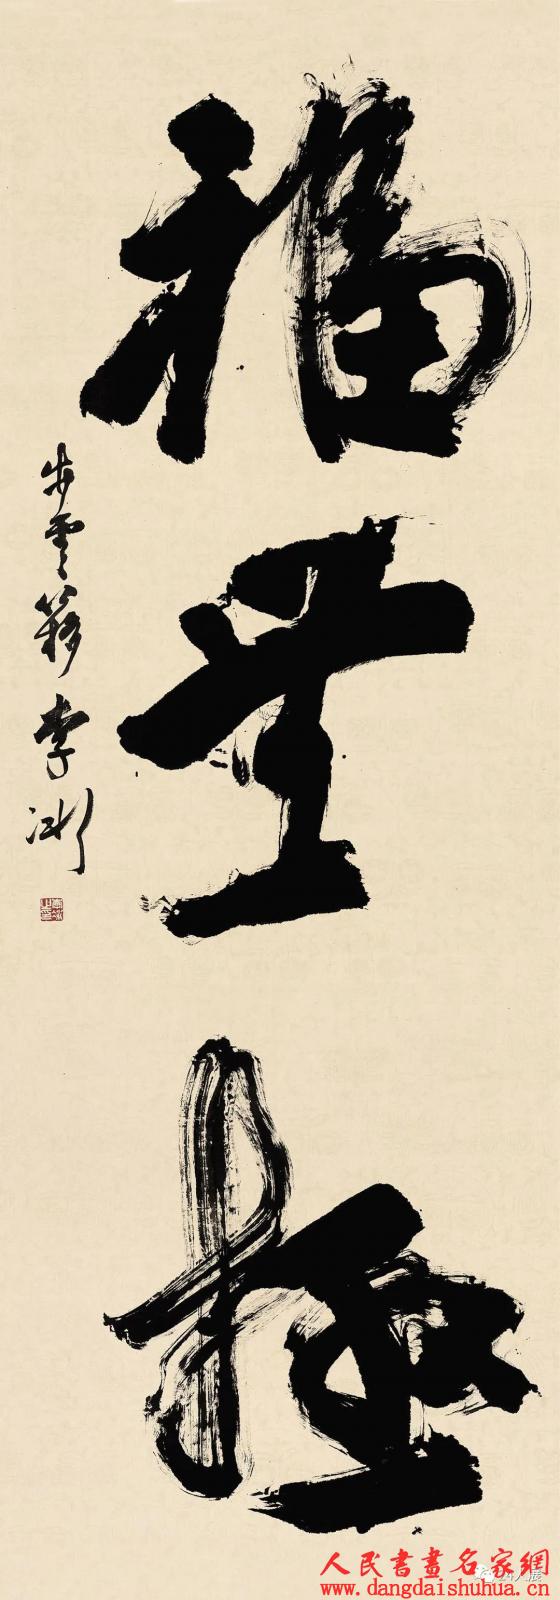 福無極
步雲簃 李
人民書畫名家網
www.dangdaishuhua.cn
24人展